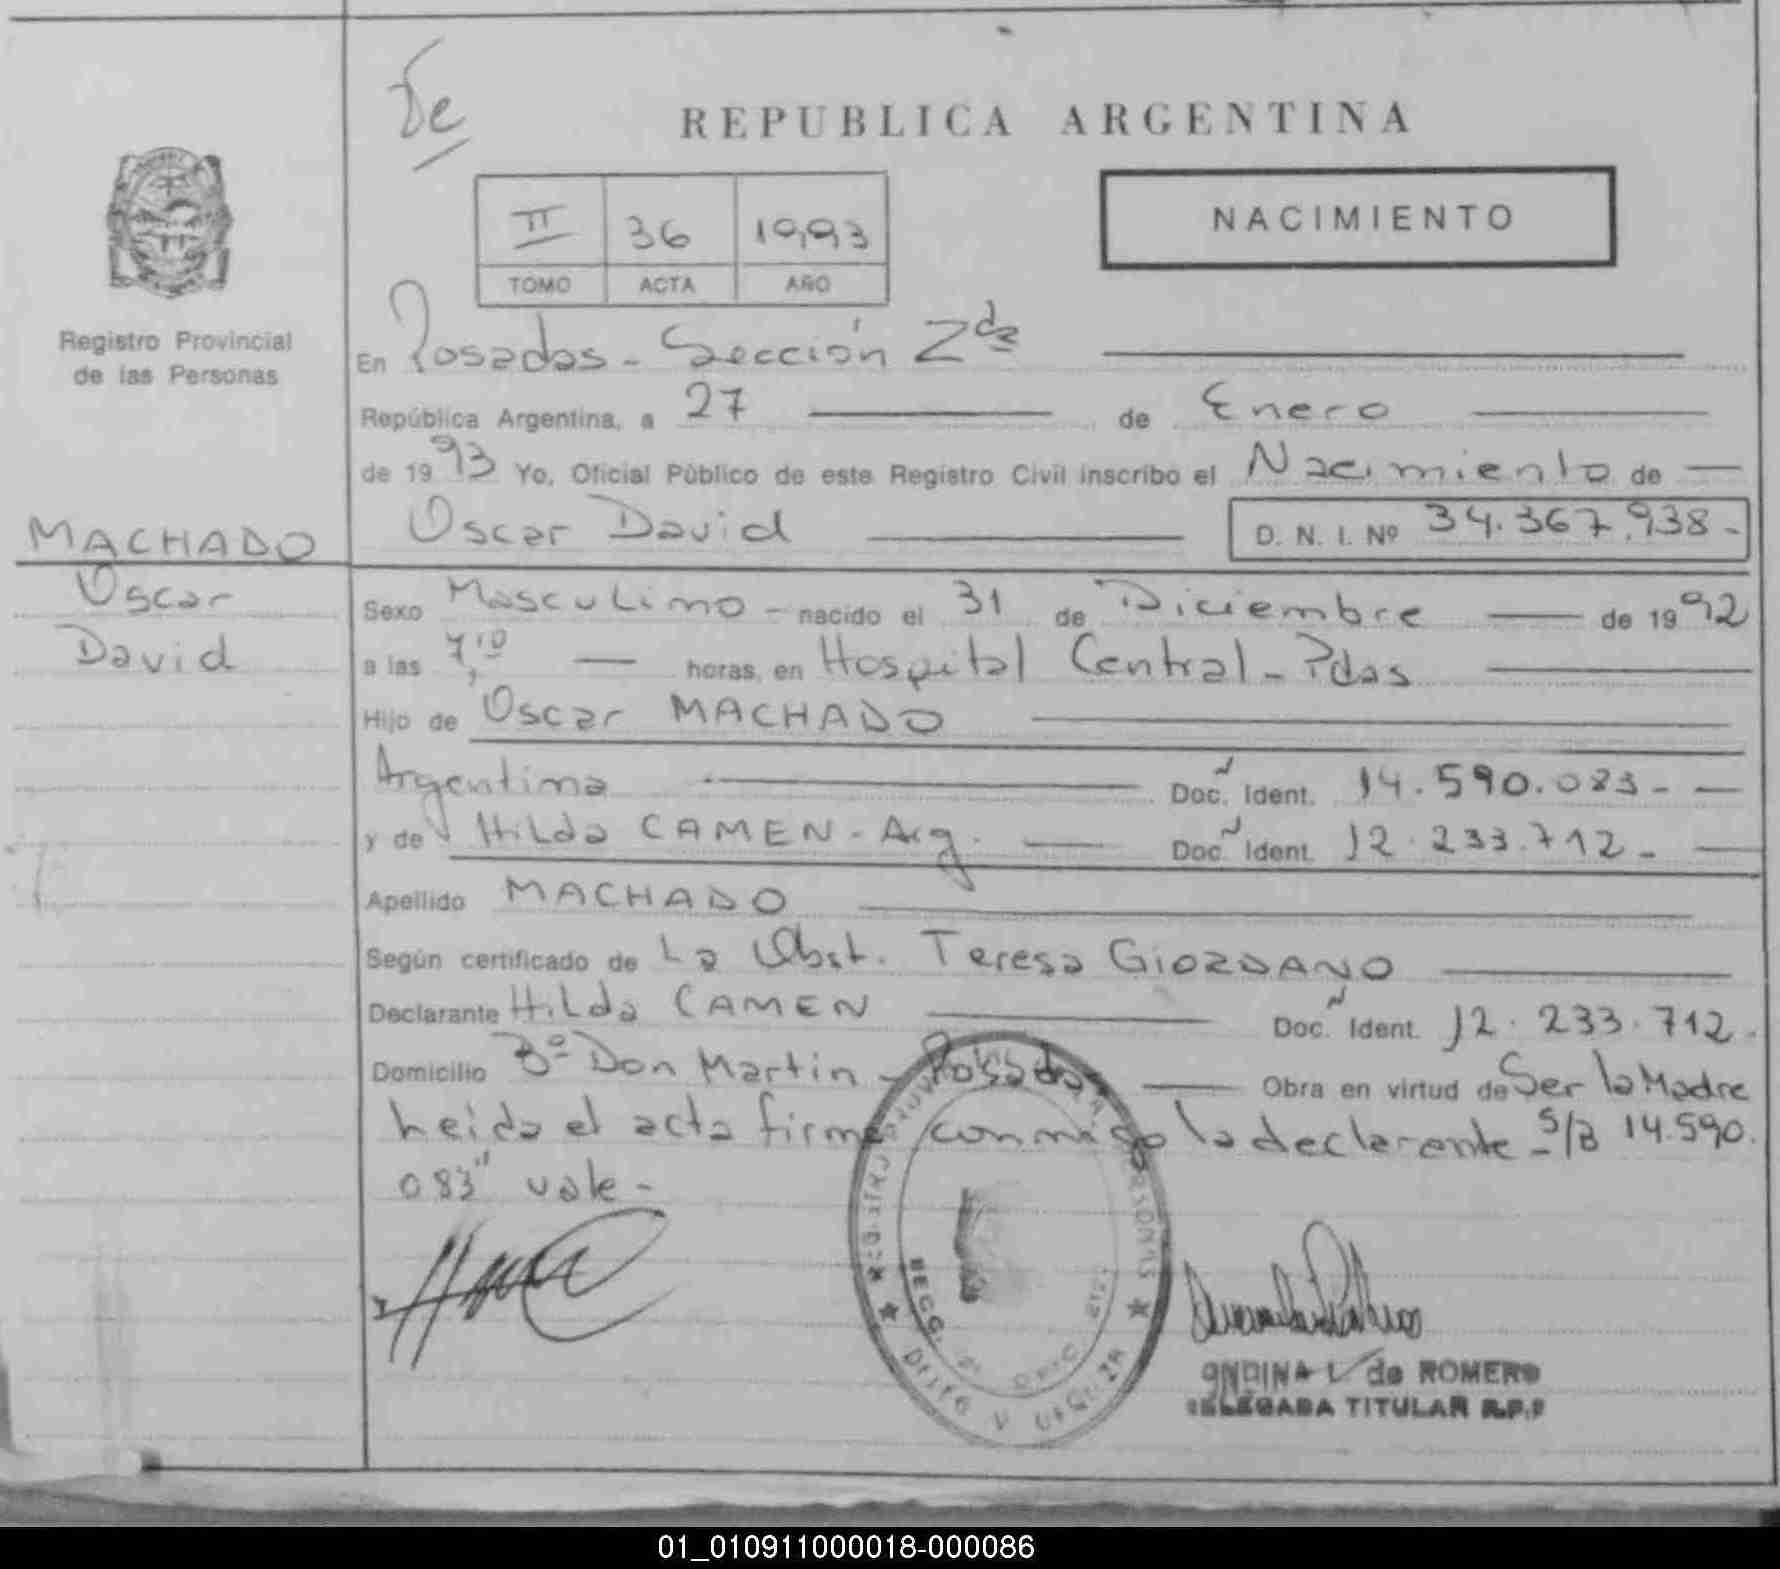 De
REPUBLICA ARGENTINA
II 36 1993
TOMO ACTA AÑO
NACIMIENTO
Registro Provincial
de las Personas
En Posadas - Sección 2da
República Argentina, a 27 de Enero
de 1993 Yo, Oficial Público de este Registro Civil inscribo el Nacimiento de
MACHADO
Oscar
David
Oscar David D. N. I. Nº 34.367.938-
Sexo Masculino - nacido el 31 de Diciembre de 1992
a las 7,10 horas, en Hospital Central - Pdas
Hijo de Oscar MACHADO
Argentina Doc. Ident. 14.590.083-
y de Hilda CAMEN - Arg. Doc. Ident. 12.233.712-
Apellido MACHADO
Según certificado de La Obst. Teresa GIORDANO
Declarante Hilda CAMEN Doc. Ident. 12.233.712.
Domicilio Bº Don Martin - Posadas Obra en virtud de Ser la Madre
Leida el acta firma conmigo la declarante - S/B 14.590.
083" vale -
SECC. 2ª
ONDINA L. de ROMERO
DELEGADA TITULAR R.P.P
01_010911000018-000086